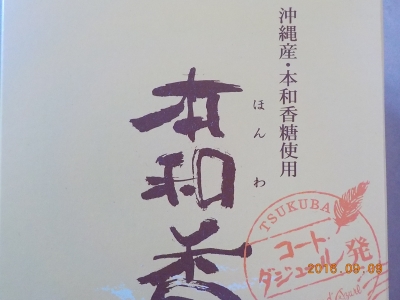 沖縄産・本和香糖使用
本和香
ほんわ
TSUKUBA
コート・
ダジュール
発
2016.09.09